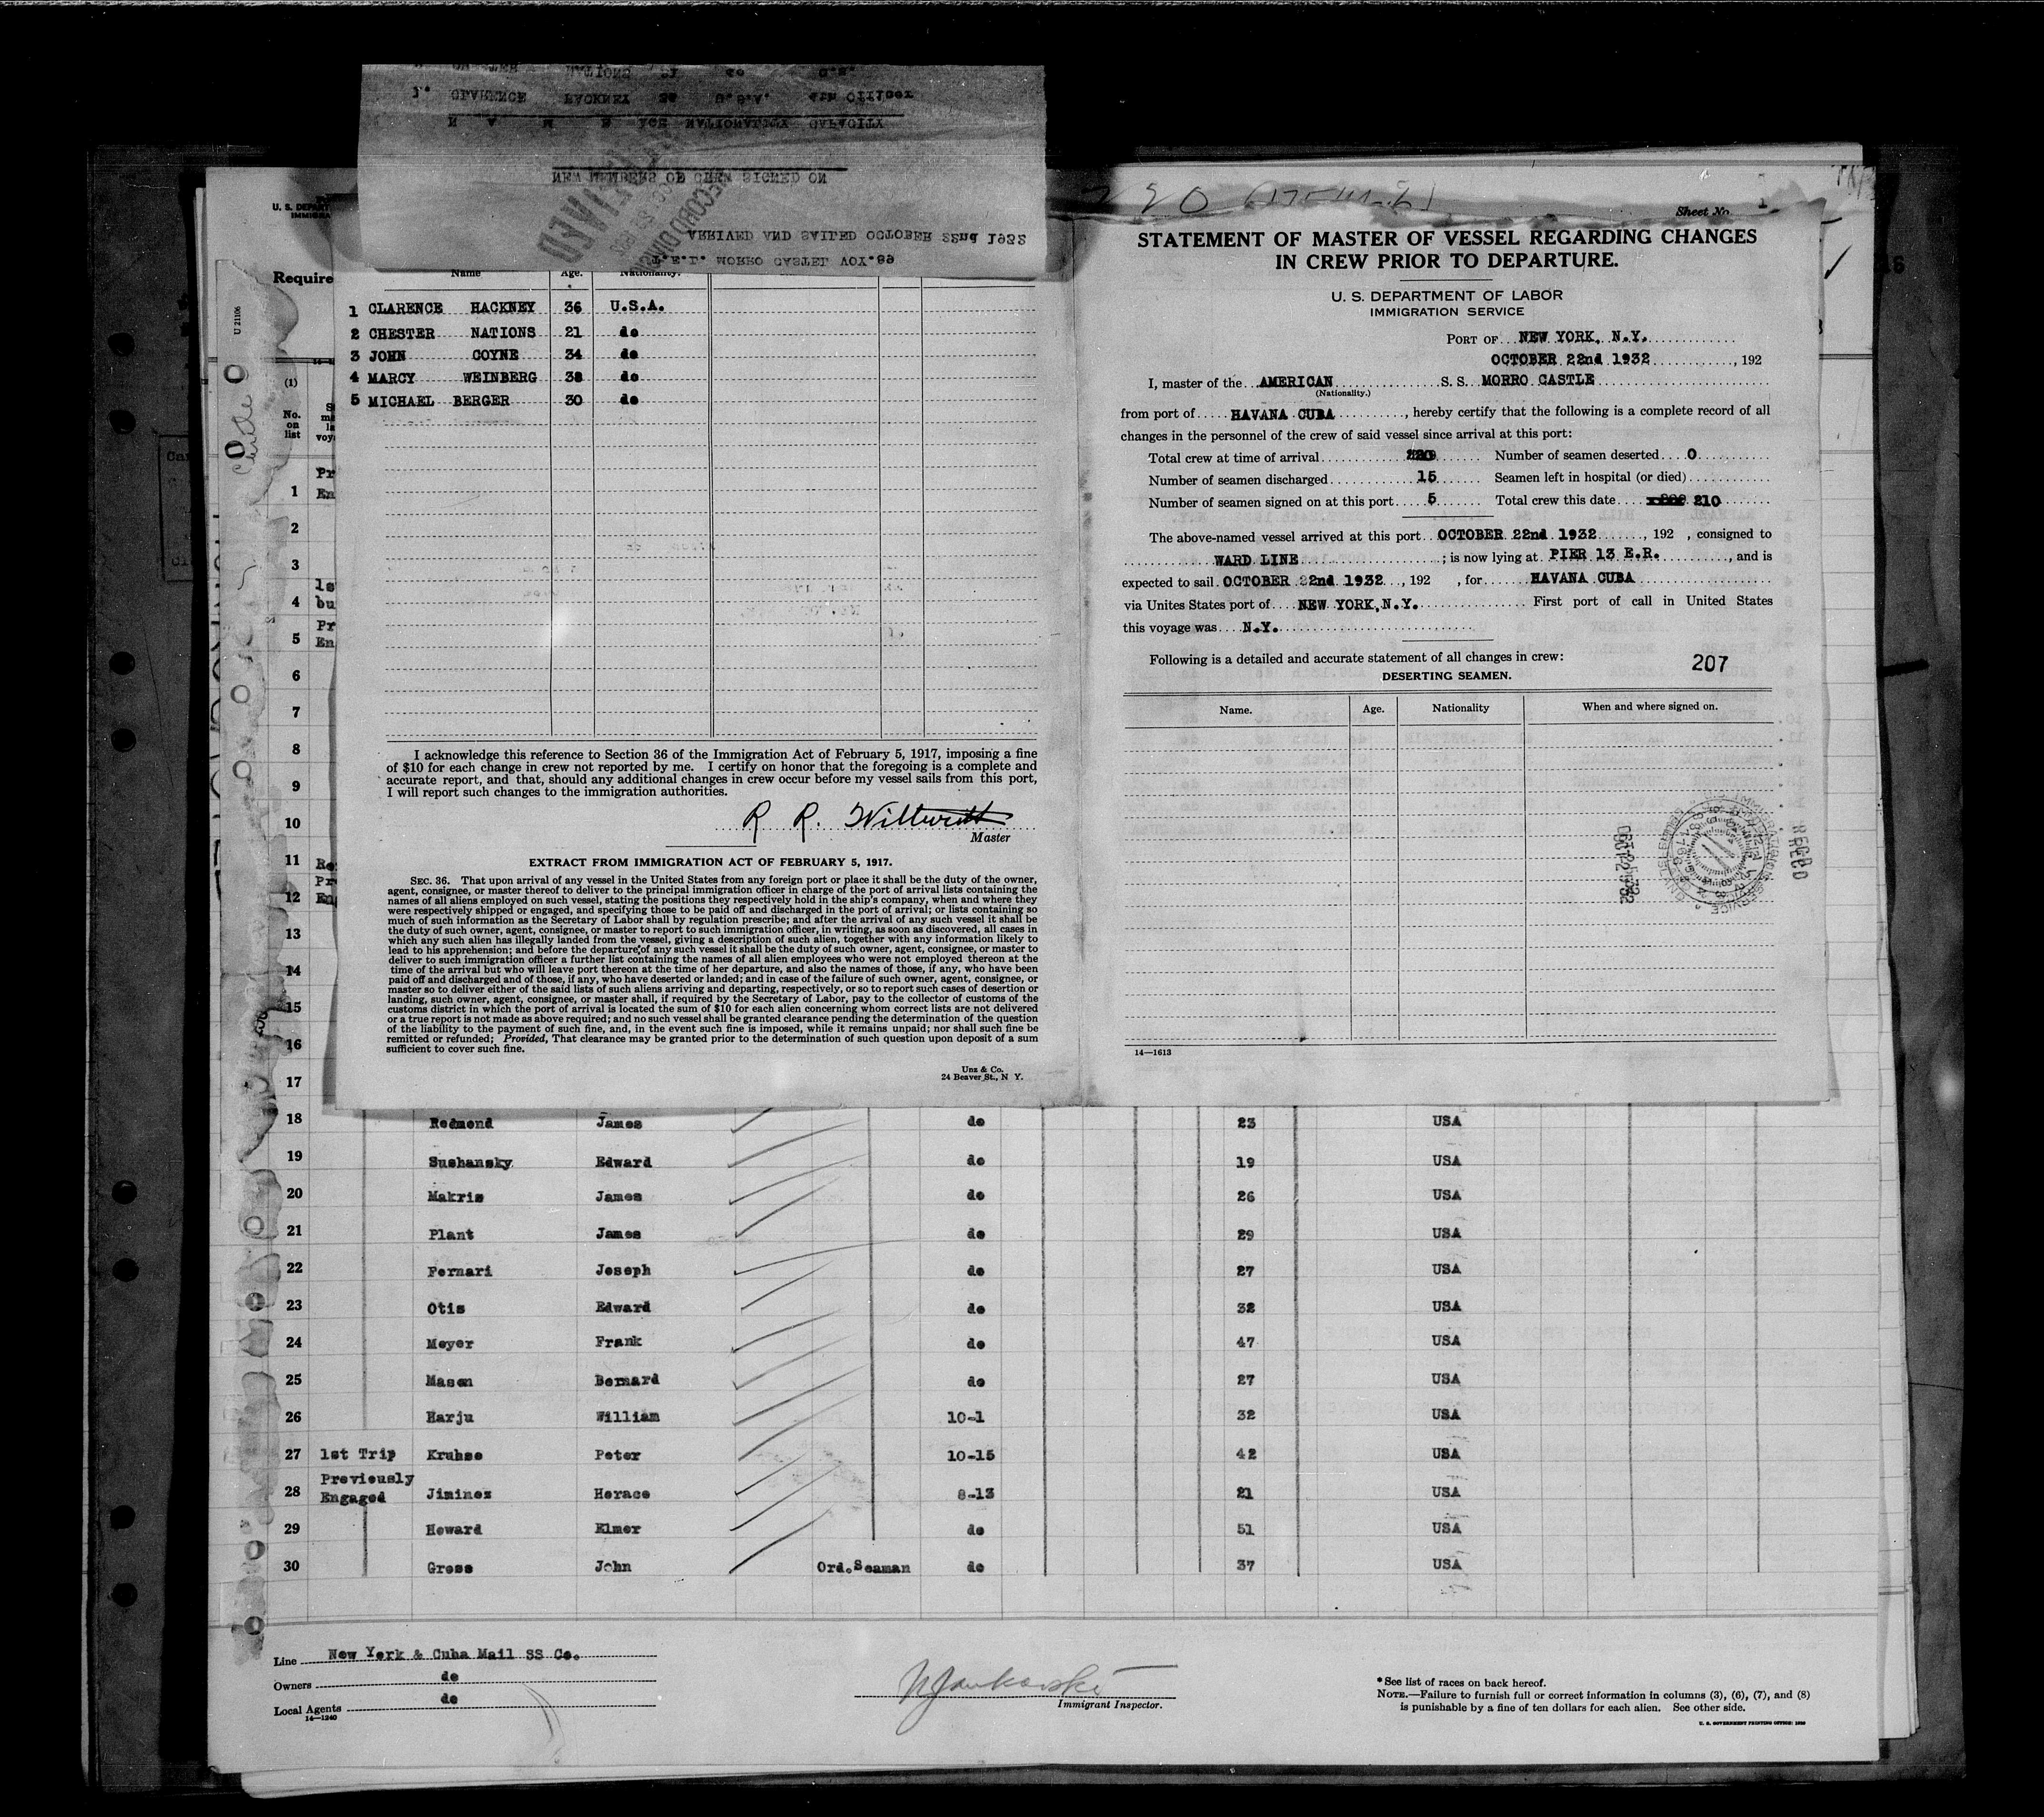 NEW MEMBERS OF CREW SIGNED ON
ARRIVED AND SAILED OCTOBER 22nd 1932
N A M E AGE NATIONALITY CAPACITY
1. CLARENCE HACKNEY 36 U.S.A. 4th Officer
Name Age. Nationality.
1 CLARENCE HACKNEY 36 U.S.A.
2 CHESTER NATIONS 21 do
3 JOHN COYNE 34 do
4 MARCY WEINBERG 38 do
5 MICHAEL BERGER 30 do
I acknowledge this reference to Section 36 of the Immigration Act of February 5, 1917, imposing a fine
of $10 for each change in crew not reported by me. I certify on honor that the foregoing is a complete and
accurate report, and that, should any additional changes in crew occur before my vessel sails from this port,
I will report such changes to the immigration authorities.
R R.
Master
EXTRACT FROM IMMIGRATION ACT OF FEBRUARY 5, 1917.
SEC. 36. That upon arrival of any vessel in the United States from any foreign port or place it shall be the duty of the owner,
agent, consignee, or master thereof to deliver to the principal immigration officer in charge of the port of arrival lists containing the
names of all aliens employed on such vessel, stating the positions they respectively hold in the ship's company, when and where they
were respectively shipped or engaged, and specifying those to be paid off and discharged in the port of arrival; or lists containing so
much of such information as the Secretary of Labor shall by regulation prescribe; and after the arrival of any such vessel it shall be
the duty of such owner, agent, consignee, or master to report to such immigration officer, in writing, as soon as discovered, all cases in
which any such alien has illegally landed from the vessel, giving a description of such alien, together with any information likely to
lead to his apprehension; and before the departure of any such vessel it shall be the duty of such owner, agent, consignee, or master to
deliver to such immigration officer a further list containing the names of all alien employees who were not employed thereon at the
time of the arrival but who will leave port thereon at the time of her departure, and also the names of those, if any, who have been
paid off and discharged and of those, if any, who have deserted or landed; and in case of the failure of such owner, agent, consignee, or
master so to deliver either of the said lists of such aliens arriving and departing, respectively, or so to report such cases of desertion or
landing, such owner, agent, consignee, or master shall, if required by the Secretary of Labor, pay to the collector of customs of the
customs district in which the port of arrival is located the sum of $10 for each alien concerning whom correct lists are not delivered
or a true report is not made as above required; and no such vessel shall be granted clearance pending the determination of the question
of the liability to the payment of such fine, and, in the event such fine is imposed, while it remains unpaid; nor shall such fine be
remitted or refunded; Provided, That clearance may be granted prior to the determination of such question upon deposit of a sum
sufficient to cover such fine.
Unz & Co.
24 Beaver St., N Y.
Sheet No. 1
STATEMENT OF MASTER OF VESSEL REGARDING CHANGES
IN CREW PRIOR TO DEPARTURE.
U. S. DEPARTMENT OF LABOR
IMMIGRATION SERVICE
PORT OF NEW YORK, N.Y.
OCTOBER 22nd 1932, 192
I, master of the AMERICAN S. S. MORRO CASTLE
(Nationality.)
from port of HAVANA CUBA, hereby certify that the following is a complete record of all
changes in the personnel of the crew of said vessel since arrival at this port:
Total crew at time of arrival 220 Number of seamen deserted 0
Number of seamen discharged 15 Seamen left in hospital (or died)
Number of seamen signed on at this port 5 Total crew this date 210
The above-named vessel arrived at this port OCTOBER 22nd 1932, 192 , consigned to
WARD LINE ; is now lying at PIER 13 E.R., and is
expected to sail OCTOBER 22nd 1932, 192 , for HAVANA CUBA
via Unites States port of NEW YORK, N.Y. First port of call in United States
this voyage was N.Y.
Following is a detailed and accurate statement of all changes in crew:
207
DESERTING SEAMEN.
Name. Age. Nationality When and where signed on.
REC'D
OCT 22 '32
14—1613
U. S. DEPART
IMMIGRA
Require
U 21106
(1)
No.
on
list
1
2
3
4
5
6
7
8
9
10
11
12
13
14
15
16
17
18 Redmond James do 23 USA
19 Sushansky Edward do 19 USA
20 Makris James do 26 USA
21 Plant James do 29 USA
22 Fernari Joseph do 27 USA
23 Otis Edward do 32 USA
24 Meyer Frank do 47 USA
25 Mason Bernard do 27 USA
26 Harju William 10-1 32 USA
27 1st Trip Kruhse Peter 10-15 42 USA
Previously
28 Engaged Jiminez Horace 8-13 21 USA
29 Howard Elmer do 51 USA
30 Gross John Ord.Seaman do 37 USA
Line New York & Cuba Mail SS Co.
Owners do
Local Agents do
14—1240
Immigrant Inspector.
* See list of races on back hereof.
NOTE.—Failure to furnish full or correct information in columns (3), (6), (7), and (8)
is punishable by a fine of ten dollars for each alien. See other side.
U. S. GOVERNMENT PRINTING OFFICE: 1930